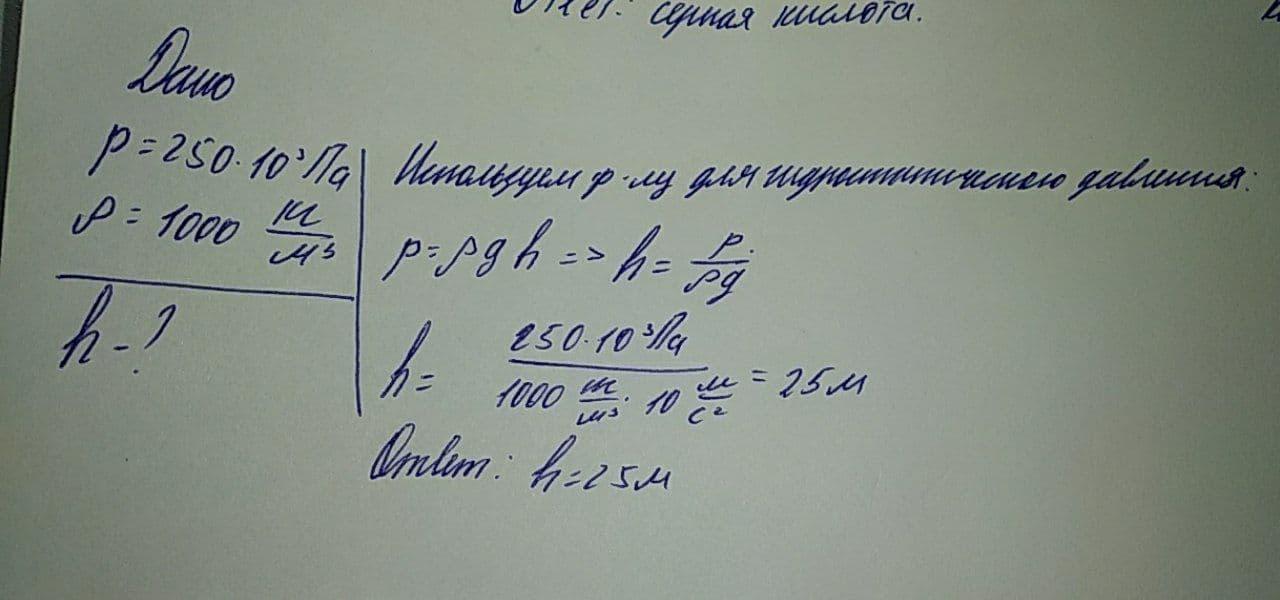 Ответ: серная кислота.
Дано
p = 250·10³ Па
ρ = 1000 кг/м³
h - ?
Используем ф-лу для гидростатического давления:
p = ρgh => h = p/ρg
h = 250·10³ Па / 1000 кг/м³ · 10 м/с² = 25 м
Ответ: h = 25 м